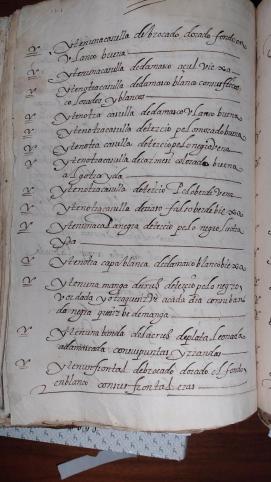 Yten una casulla de brocado dorado fondo en
blanco buena
Yten una casulla de damasco açul viexa
Yten otra casulla de damasco blanco con
colorados y blancos
Yten otra casulla de damasco blanco buena
Yten otra casulla de terçio pelo morado buena
Yten otra casulla de terçio pelo negro buena
Yten otra casulla de carmesi colorado buena
algo traida
Yten otra casulla de terçio pelo berde buena
Yten otra casulla de raso falso berde biexa
Yten una capa negra de terçio pelo negro
Yten otra capa blanca de damasco blanco biexa
Yten una manga de cruz de terçio pelo negro
bordada
da negra que sirbe de manga
Yten una banda de la cruz de plata leonada
adamascada con sus puntas y
Yten un frontal de brocado dorado el fondo
en blanco con sus frontaleras